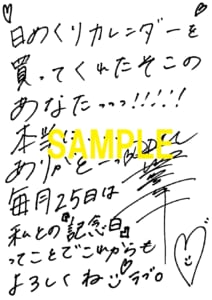 日めくりカレンダーを
買ってくれたそこの
あなたっっっ!!!!!
本当
SAMPLE
ありがと
毎月25日は
私との『記念日』
ってことでこれからも
よろしくねラブ。